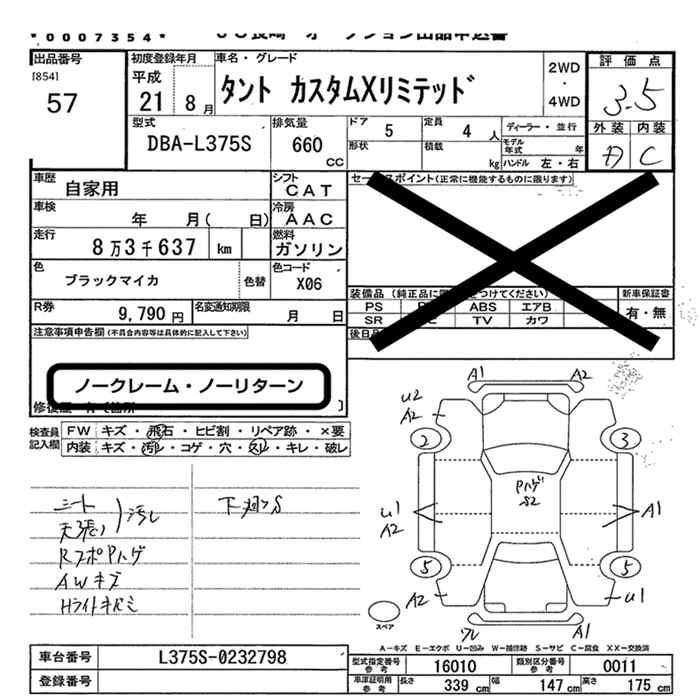 *0007354*
出品番号
[854]
57
初度登録年月
平成
21 8月
車名・グレード
タント カスタムXリミテッド
2WD
・
4WD
評価点
3.5
外装 内装
C
型式
DBA-L375S
排気量
660
CC
ドア 5
定員 4 人
ディーラー・並行
形状
積載 kg
モデル年式 年
ハンドル 左・右
車歴
自家用
シフト
CAT
車検
年 月( 日)
冷房
AAC
走行
8万3千637 km
燃料
ガソリン
色
ブラックマイカ
色替
色コード
X06
R券
9,790円
名変通知期限
月 日
セースポイント(正常に機能するものに限ります)
装備品(純正品に つけてください)
新車保証書
PS ABS エアB
SR TV カワ
有・無
後日品
注意事項申告欄(不具合内容等は具体的に記入して下さい)
ノークレーム・ノーリターン
検査員
記入欄
FW キズ・飛石・ヒビ割・リペア跡・×要
内装 キズ・汚レ・コゲ・穴・スレ・キレ・破レ
天張り 汚レ
AWキズ
A1 A2
U2
A2
2 3
U1
A2
A1
5 5
A2 U1
A1
スペア
A-キズ E-エクボ U-凹み W-補修跡 S-サビ C-腐食 XX-交換済
車台番号
L375S-0232798
登録番号
型式指定番号
参考
16010
類別区分番号
参考
0011
車庫証明用
参考
長さ 339 cm
幅 147 cm
高さ 175 cm